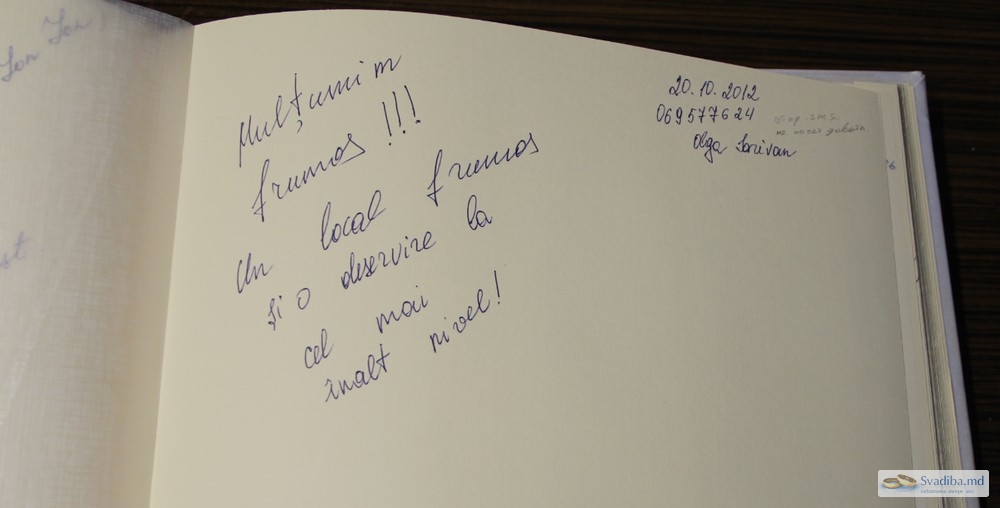 Mulțumim
frumos !!!
Un local frumos
și o deservire la
cel mai
înalt nivel!
20.10.2012
069577624
Olga
Svadiba.md